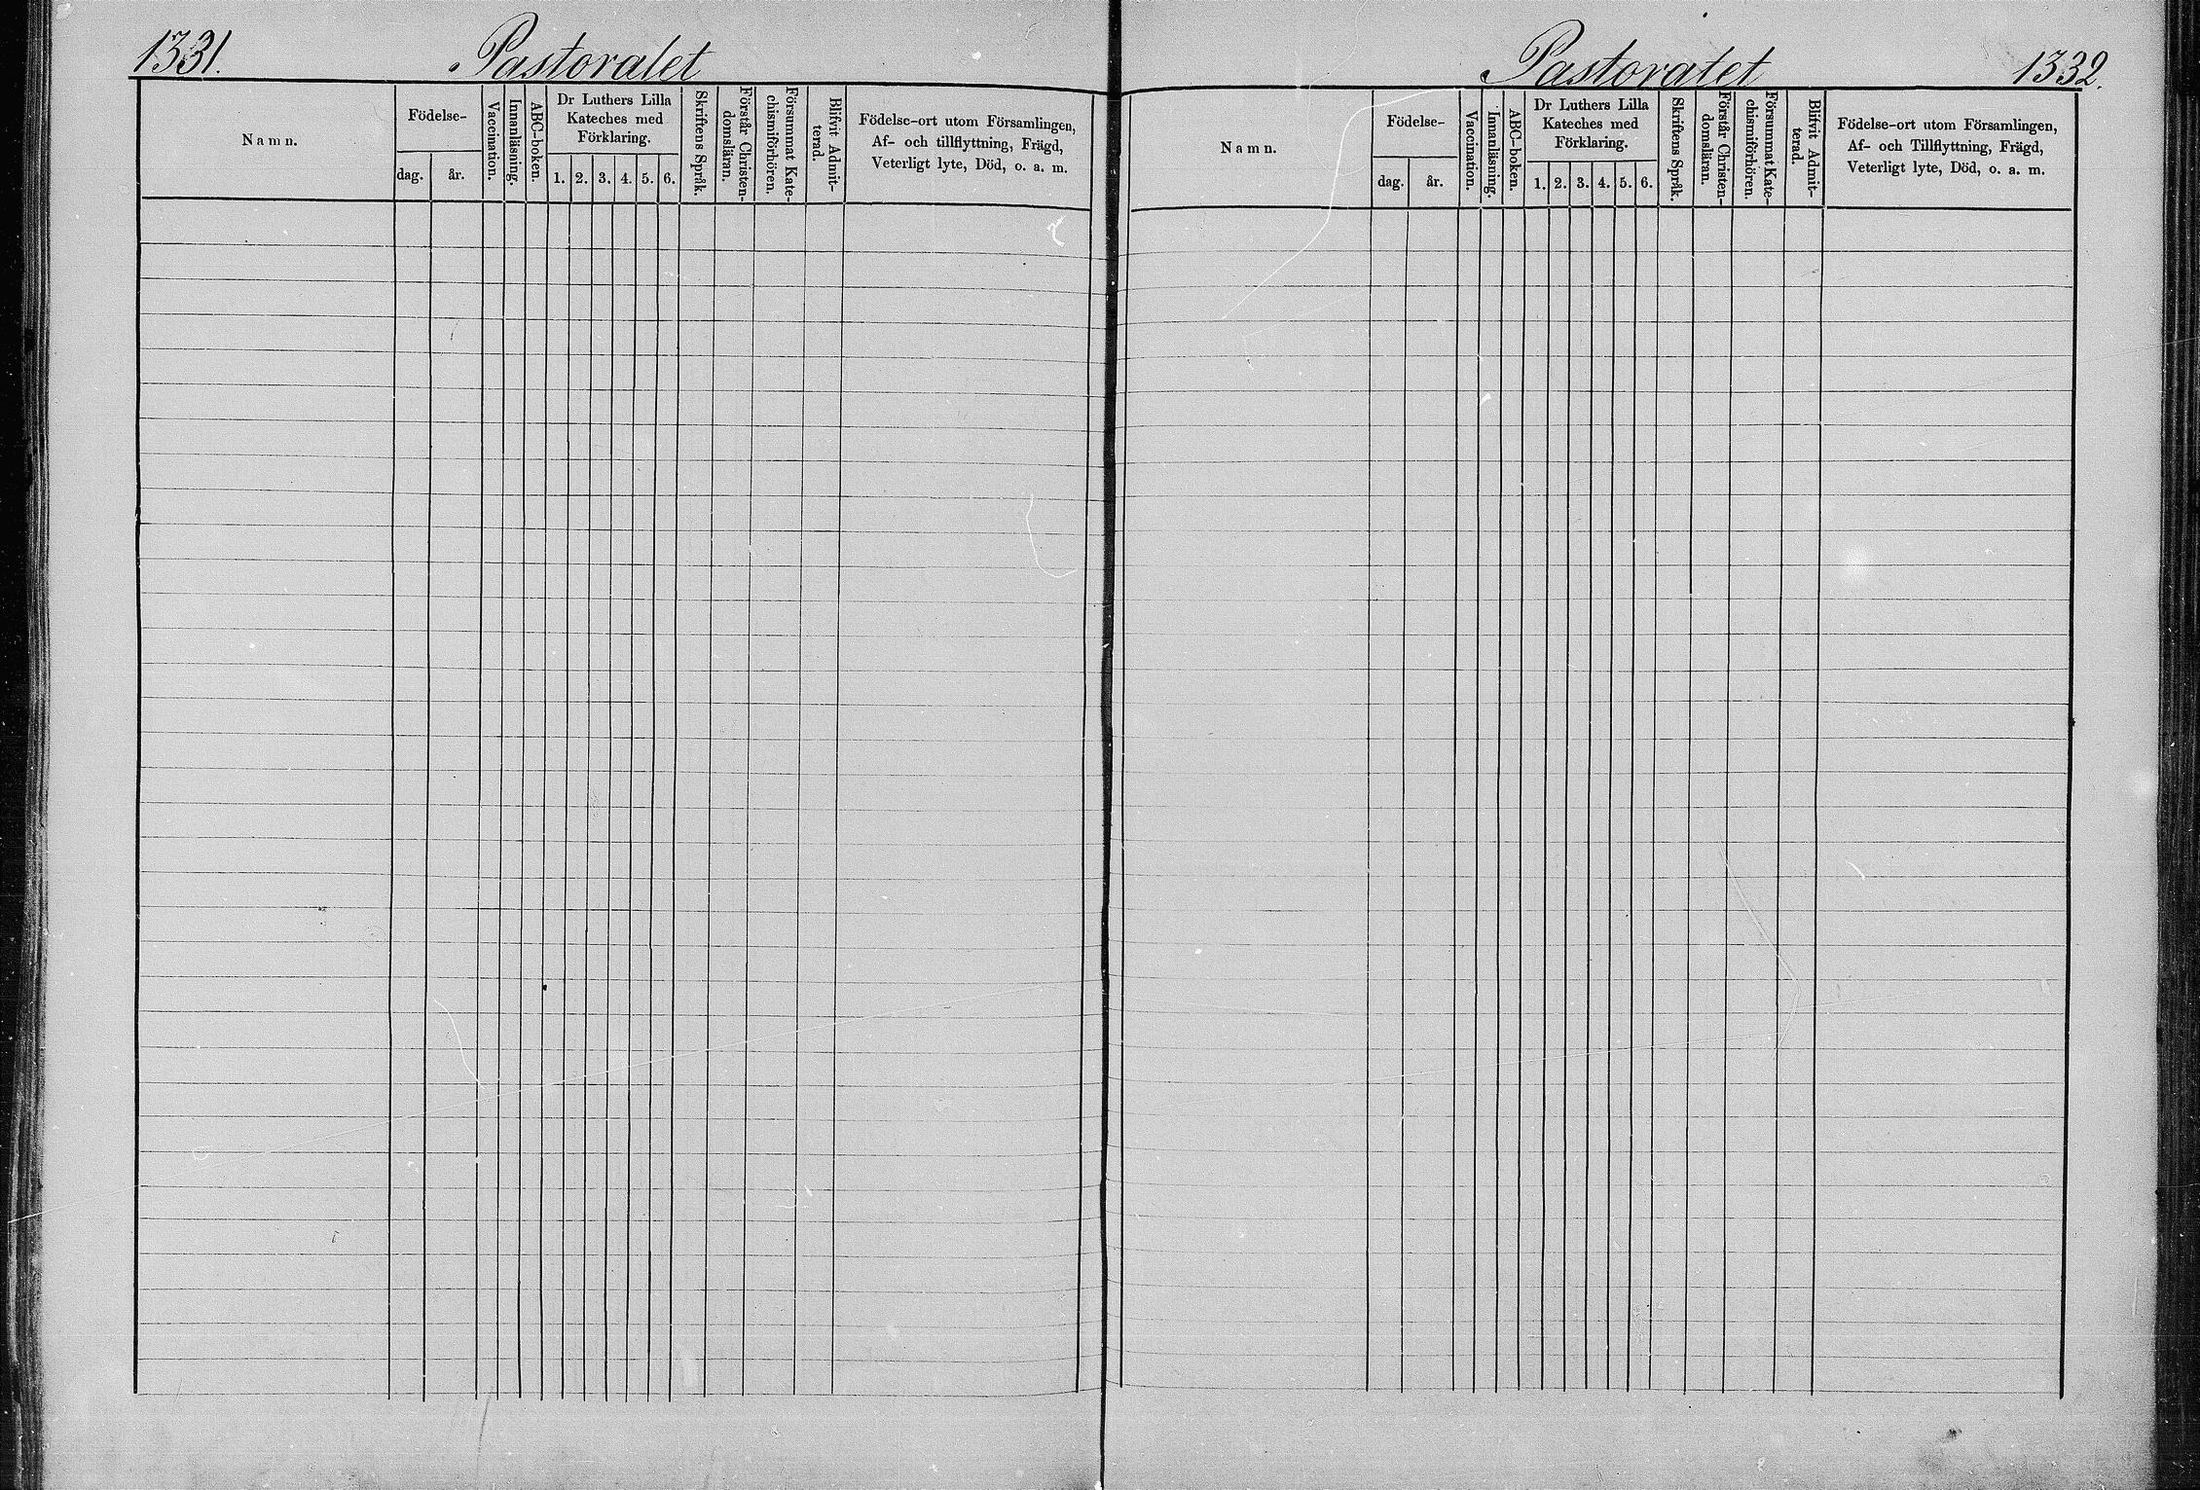 1331.
Pastoralet
Namn.
Födelse-
dag.
år.
Vaccination.
Innanläsning.
ABC-boken.
Dr Luthers Lilla
Kateches med
Förklaring.
1. 2. 3. 4. 5. 6.
Skriftens Språk.
Förstår Christen-
domsläran.
Försummat Kate-
chismiförhören.
Blifvit Admit-
terad.
Födelse-ort utom Församlingen,
Af- och tillflyttning, Frägd,
Veterligt lyte, Död, o. a. m.
Pastoratet
1332.
Namn.
Födelse-
dag.
år.
Vaccination.
Innanläsning.
ABC-boken.
Dr Luthers Lilla
Kateches med
Förklaring.
1. 2. 3. 4. 5. 6.
Skriftens Språk.
Förstår Christen-
domsläran.
Försummat Kate-
chismiförhören.
Blifvit Admit-
terad.
Födelse-ort utom Församlingen,
Af- och Tillflyttning, Frägd,
Veterligt lyte, Död, o. a. m.